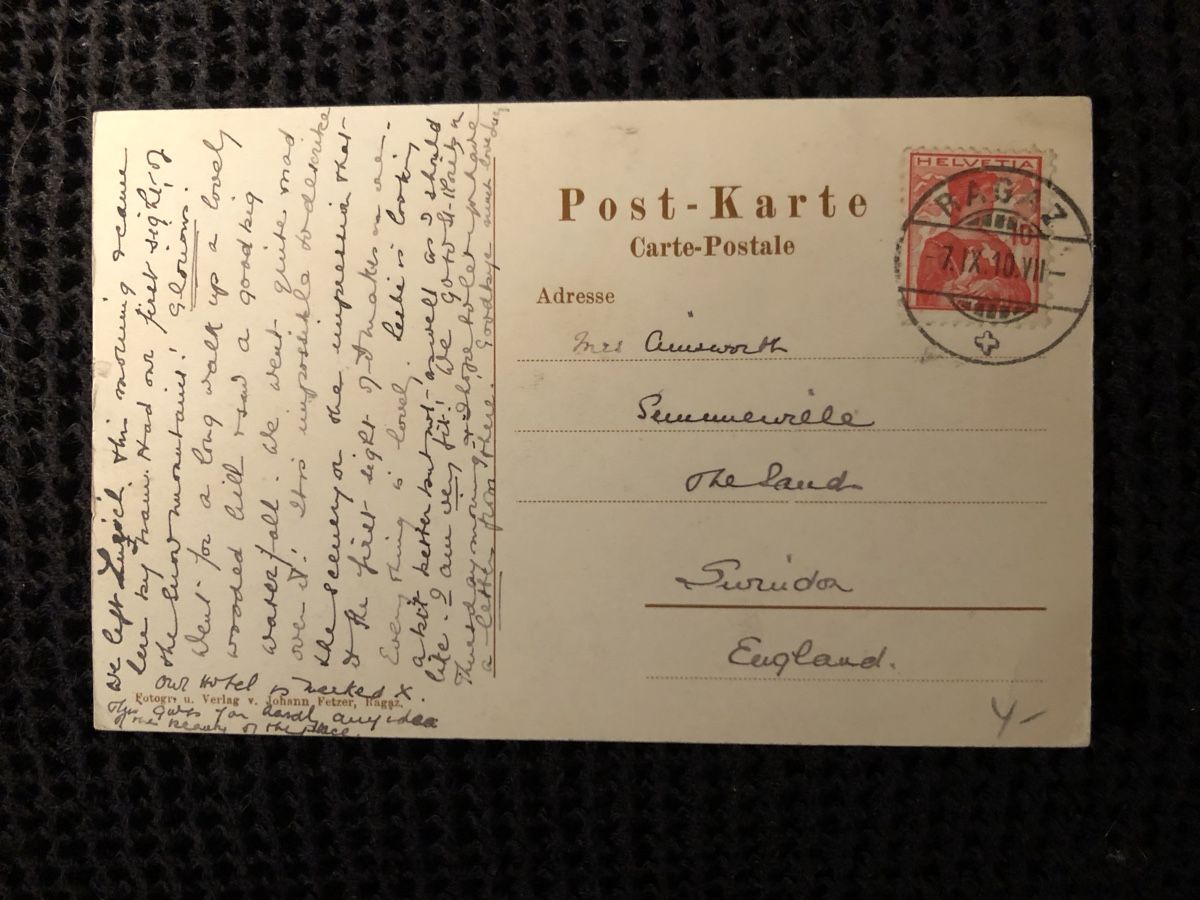 Post-Karte
Carte-Postale
Adresse
HELVETIA
10
RAGAZ
-7.IX.10.VII-
Mrs Ainsworth
Summerville
The Sands
Swindon
England.
4-
We left Zurich this morning & came
here by train. Had our first sight of
the snow mountains! Glorious!
Went for a long walk up a lovely
wooded hill & saw a good big
waterfall. We went quite mad
over it! It is impossible to describe
the scenery or the impression that
the first sight of it makes on one.
Every thing is lovely. Leslie is looking
a bit better but not as well as I should
like. I am very fit! We go to St. Moritz on
Thursday morning & hope to let you have
a letter from there. Goodbye much love
Our Hotel is marked X.
Fotogr. u. Verlag v. Johann Fetzer, Ragaz.
This gives you hardly any idea
of the beauty of the place.